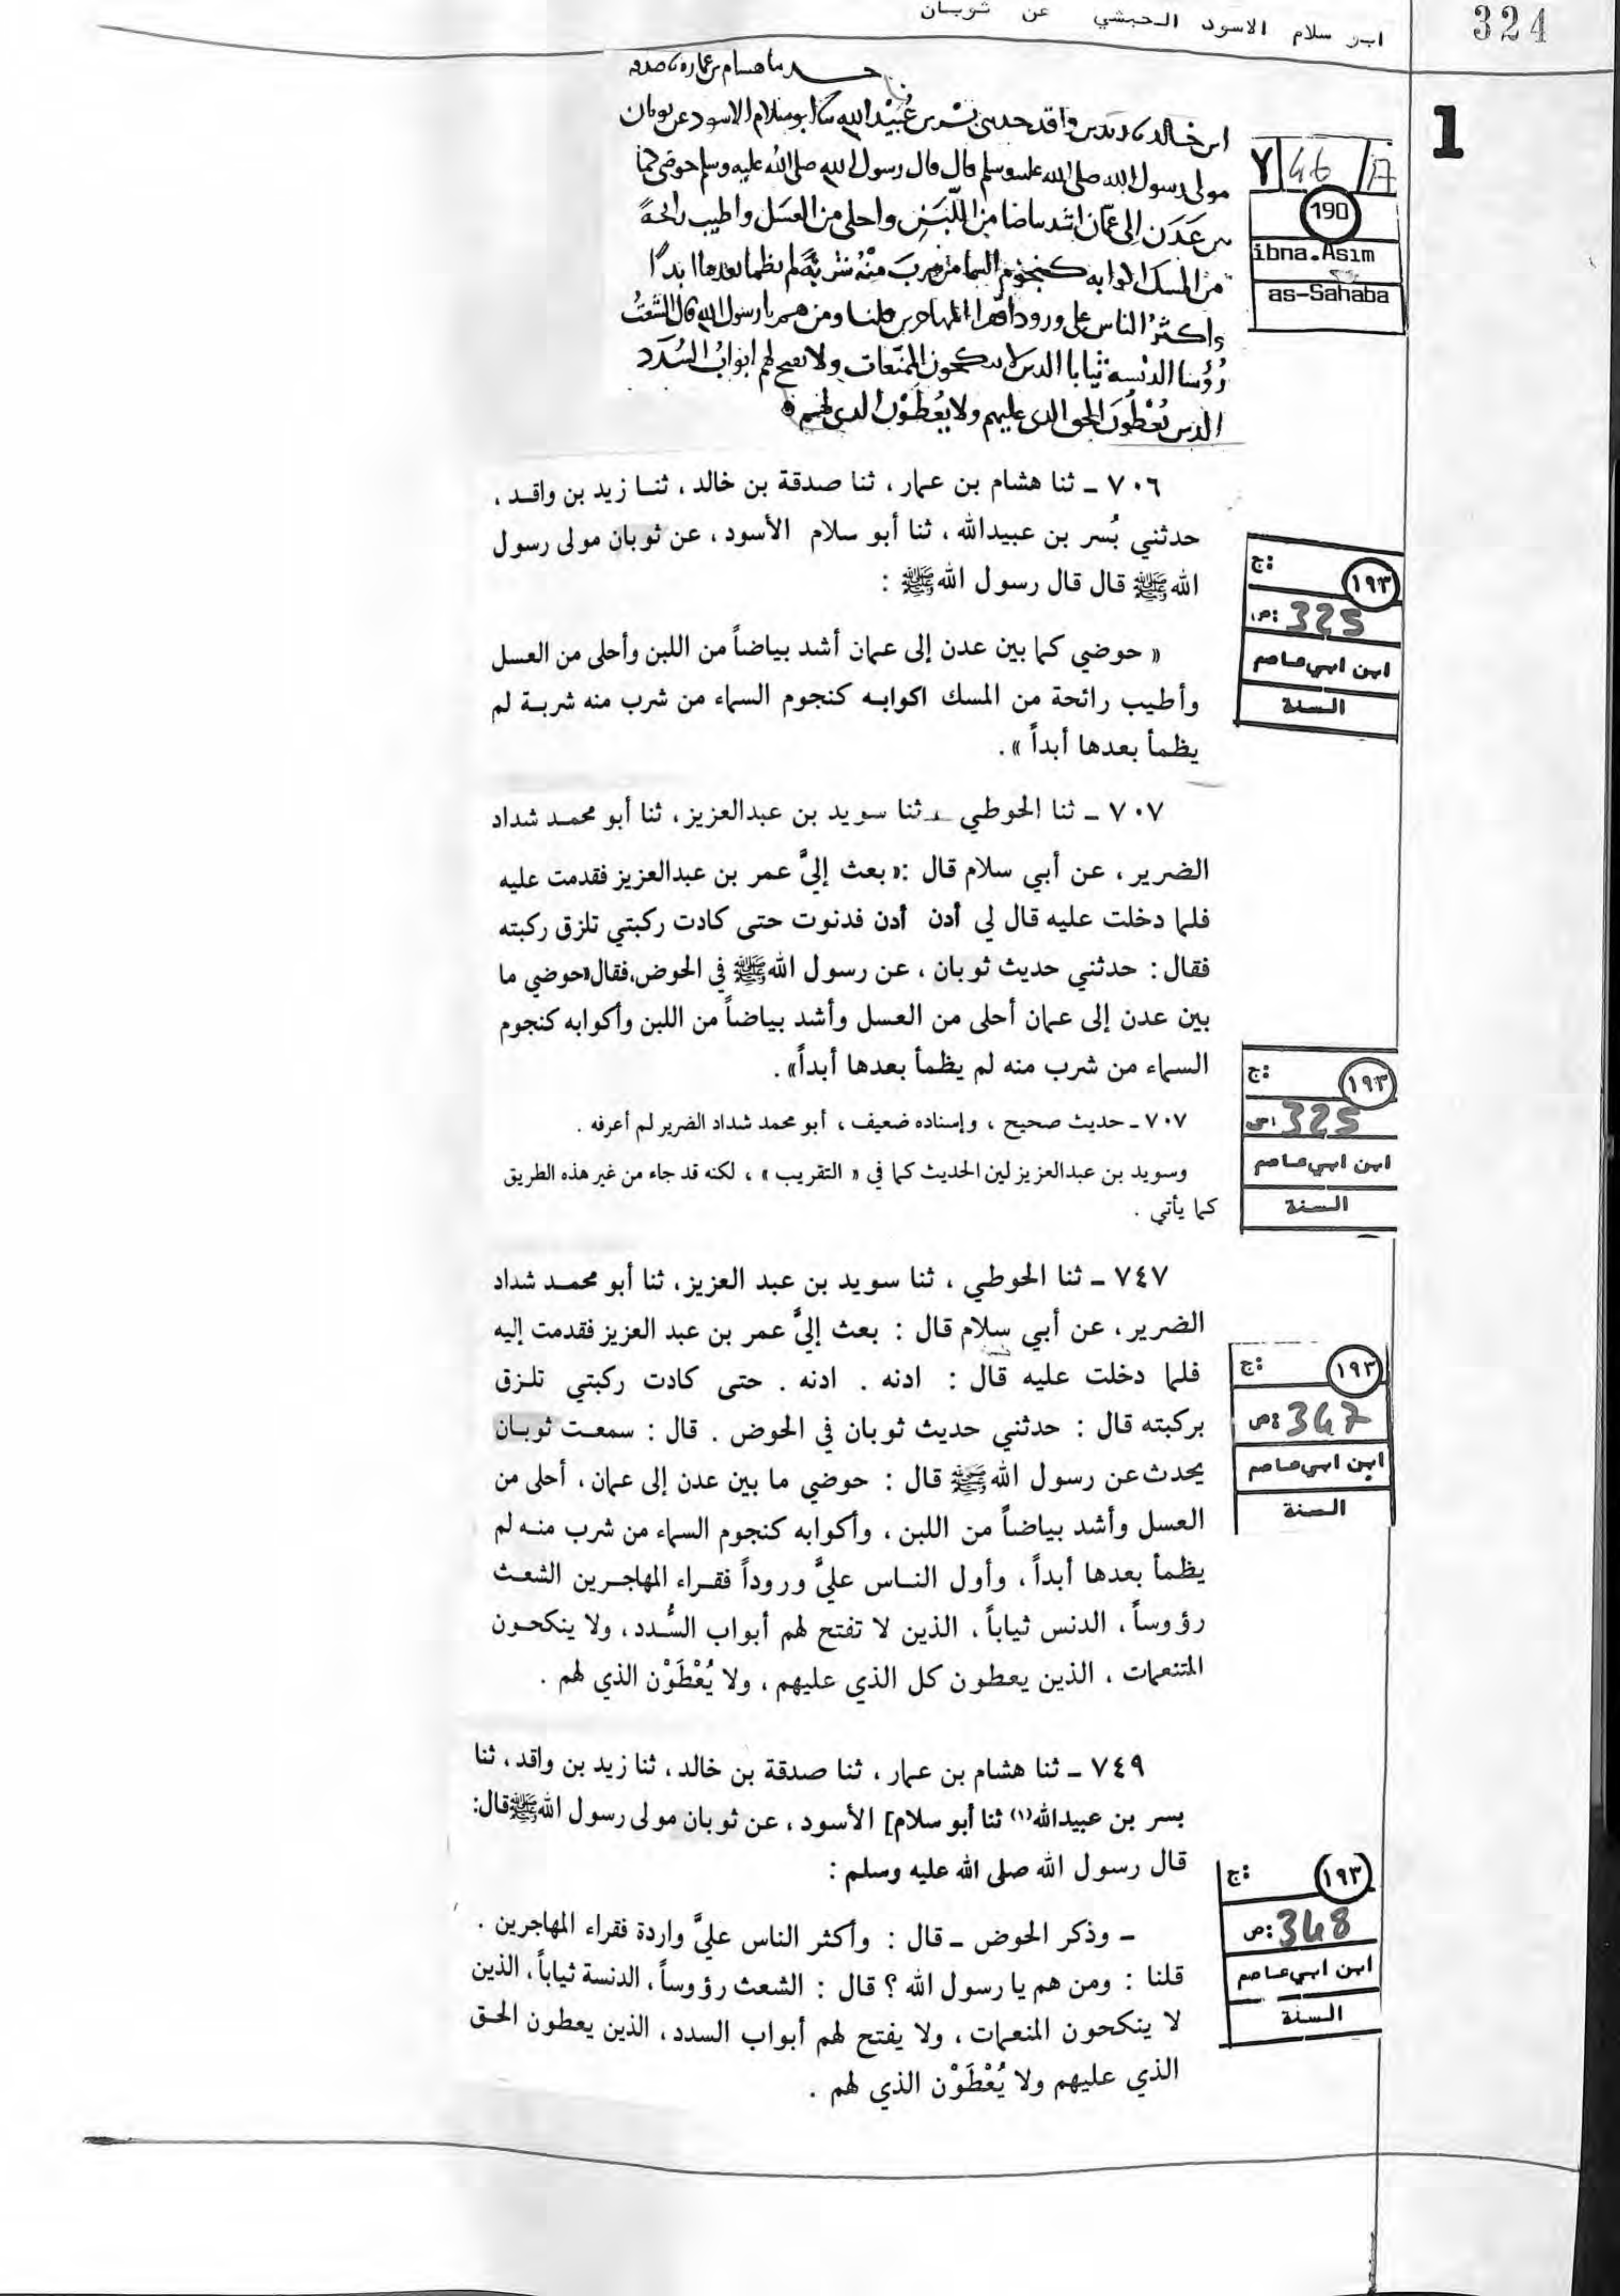 324
ابن سلام الاسود الحبشي عن ثوبان
1
هسام بن عمار صدقه
ابن خالد زيد بن واقد حدثني بُسْر بن عُبَيْد الله ابو سلام الاسود عن ثوبان
مولى رسول الله صلى الله عليه وسلم قال قال رسول الله صلى الله عليه وسلم حوضي كما
بين عَدَن الى عمّان اشد بياضا من اللّبَن واحلى من العسَل واطيب رائحةً
من المسك اكوابه كنجوم السما من شرب مِنْهُ شربةً لم يظما بعدها ابدًا
واكثرُ الناس علي ورودا فقرا المهاجرين قلنا ومن هم يا رسول الله قال الشُعْثُ
رُؤُسا الدنسة ثيابا الذين لا ينكحون المنعّمات ولا تفتح لهم ابوابُ السُدَد
الذين يُعْطُونَ الحق الذي عليهم ولا يُعْطَوْن الذي لهم
Y 46/A
190
ibna.Asım
as-Sahaba
٧٠٦ ـ ثنا هشام بن عمار ، ثنا صدقة بن خالد ، ثنا زيد بن واقد ،
حدثني بُسر بن عبيدالله ، ثنا أبو سلام الأسود ، عن ثوبان مولى رسول
الله ﷺ قال قال رسول الله ﷺ :
« حوضي كما بين عدن إلى عمان أشد بياضاً من اللبن وأحلى من العسل
وأطيب رائحة من المسك اكوابه كنجوم السماء من شرب منه شربة لم
يظمأ بعدها أبداً » .
ج:
١٩٣
ص: 325
ابن ابي عاصم
السنة
٧٠٧ ـ ثنا الحوطي ، ثنا سويد بن عبدالعزيز ، ثنا أبو محمد شداد
الضرير ، عن أبي سلام قال :« بعث إليَّ عمر بن عبدالعزيز فقدمت عليه
فلما دخلت عليه قال لي أدن أدن فدنوت حتى كادت ركبتي تلزق ركبته
فقال : حدثني حديث ثوبان ، عن رسول الله ﷺ في الحوض ،فقال«حوضي ما
بين عدن إلى عمان أحلى من العسل وأشد بياضاً من اللبن وأكوابه كنجوم
السماء من شرب منه لم يظمأ بعدها أبداً» .
٧٠٧ ـ حديث صحيح ، وإسناده ضعيف ، أبو محمد شداد الضرير لم أعرفه .
وسويد بن عبدالعزيز لين الحديث كما في « التقريب » ، لكنه قد جاء من غير هذه الطريق
كما يأتي .
ج:
١٩٣
ص: 325
ابن ابي عاصم
السنة
٧٤٧ ـ ثنا الحوطي ، ثنا سويد بن عبد العزيز ، ثنا أبو محمد شداد
الضرير ، عن أبي سلام قال : بعث إليَّ عمر بن عبد العزيز فقدمت إليه
فلما دخلت عليه قال : ادنه . ادنه . حتى كادت ركبتي تلزق
بركبته قال : حدثني حديث ثوبان في الحوض . قال : سمعت ثوبان
يحدث عن رسول الله ﷺ قال : حوضي ما بين عدن إلى عمان ، أحلى من
العسل وأشد بياضاً من اللبن ، وأكوابه كنجوم السماء من شرب منه لم
يظمأ بعدها أبداً ، وأول الناس عليَّ وروداً فقراء المهاجرين الشعث
رؤوساً ، الدنس ثياباً ، الذين لا تفتح لهم أبواب السُّدد ، ولا ينكحون
المتنعمات ، الذين يعطون كل الذي عليهم ، ولا يُعْطَوْن الذي لهم .
ج:
١٩٣
ص: 347
ابن ابي عاصم
السنة
٧٤٩ ـ ثنا هشام بن عمار ، ثنا صدقة بن خالد ، ثنا زيد بن واقد ، ثنا
بسر بن عبيدالله(١) ثنا أبو سلام] الأسود ، عن ثوبان مولى رسول الله ﷺ قال:
قال رسول الله صلى الله عليه وسلم :
ـ وذكر الحوض ـ قال : وأكثر الناس عليَّ واردة فقراء المهاجرين .
قلنا : ومن هم يا رسول الله ؟ قال : الشعث رؤوساً ، الدنسة ثياباً ، الذين
لا ينكحون المنعمات ، ولا يفتح لهم أبواب السدد ، الذين يعطون الحق
الذي عليهم ولا يُعْطَوْن الذي لهم .
ج:
١٩٣
ص: 348
ابن ابي عاصم
السنة